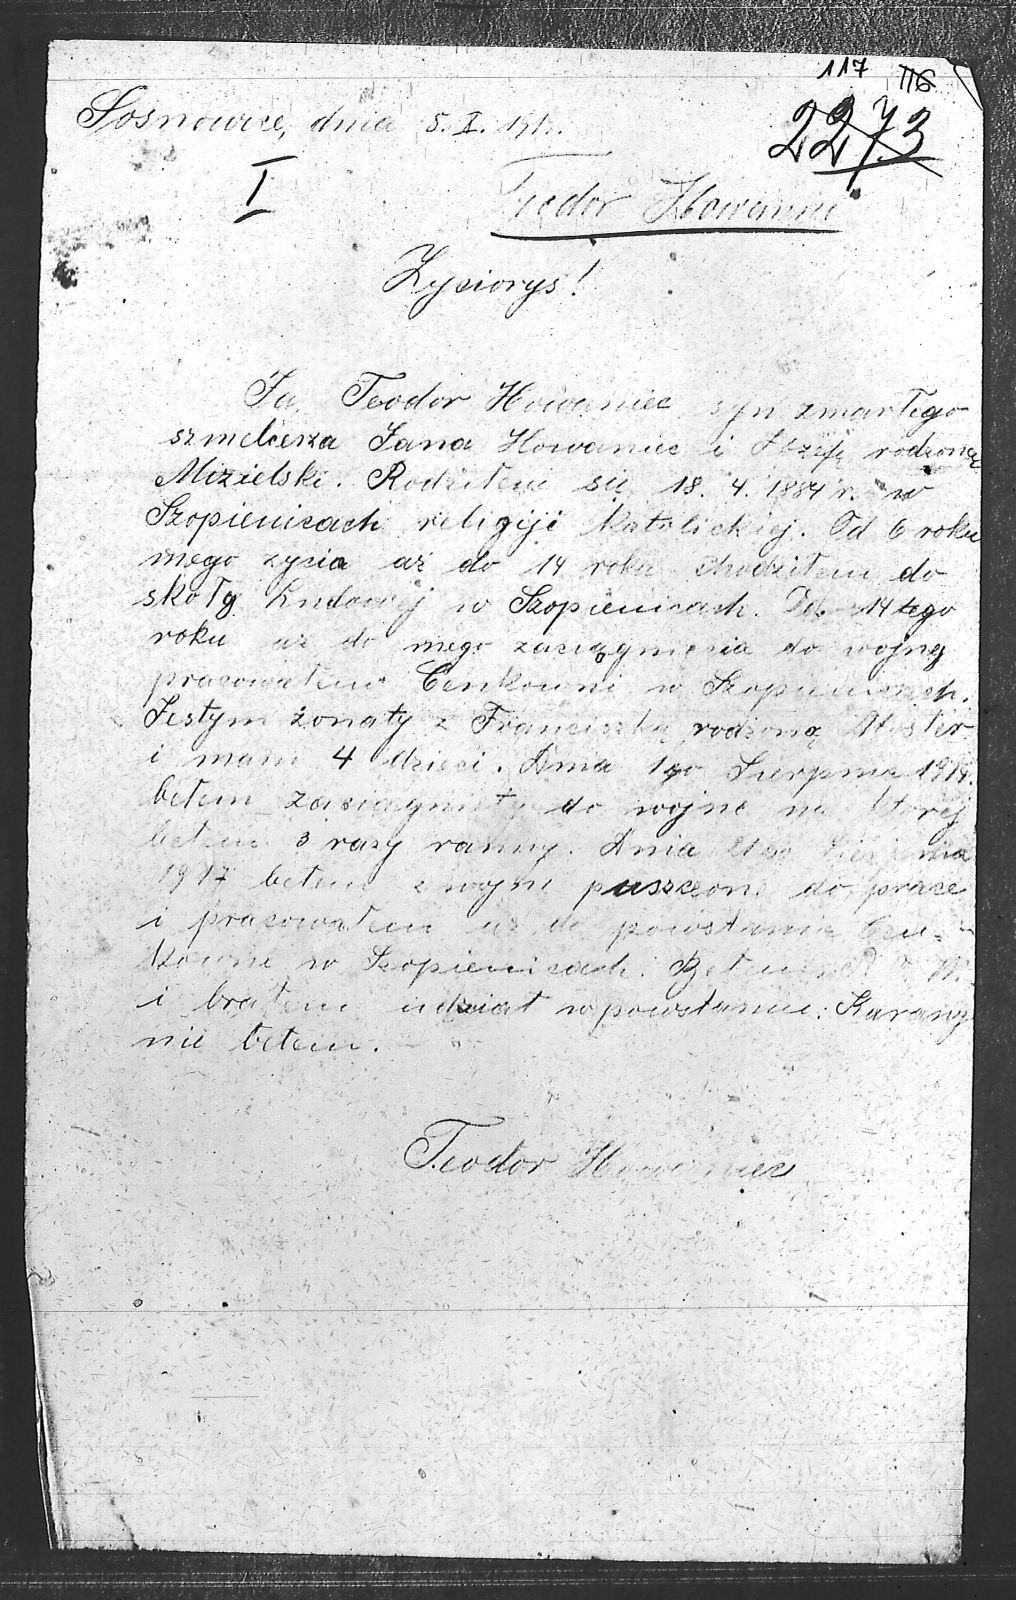 117 116
2273
Sosnowice, dnia 5. X. 191
I
Teodor Howaniec
Zyciorys!
Ja, Teodor Howaniec syn zmarłego
szmelcerza Jana Howaniec i Józefy rodzoną
Mizielski. Rodziłem się 18. 4. 1884 r. w
Szopienicach religiji Katolickiej. Od 6 roku
mego zycia aż do 14 roku chodziłem do
skoły Ludowej w Szopienicach. Od 14tego
roku aż do mego zaciągniecia do wojny
pracowałem Cenkowni w Szopienicach.
Jestym żonaty z Franciszką rodzoną
i mam 4 dzieci. Dnia 1go Sierpnia 1914.
betem zaciągnięty do wojne na ktorej
betem 3 razy ranny. Dnia 21go
1917 betem z wojne puszczone do prace
i pracowałem aż do powstania Cen-
kowni w Szopienicach. Betem
i brałem udział w powstaniu: Karany
nie betem.
Teodor Howaniec